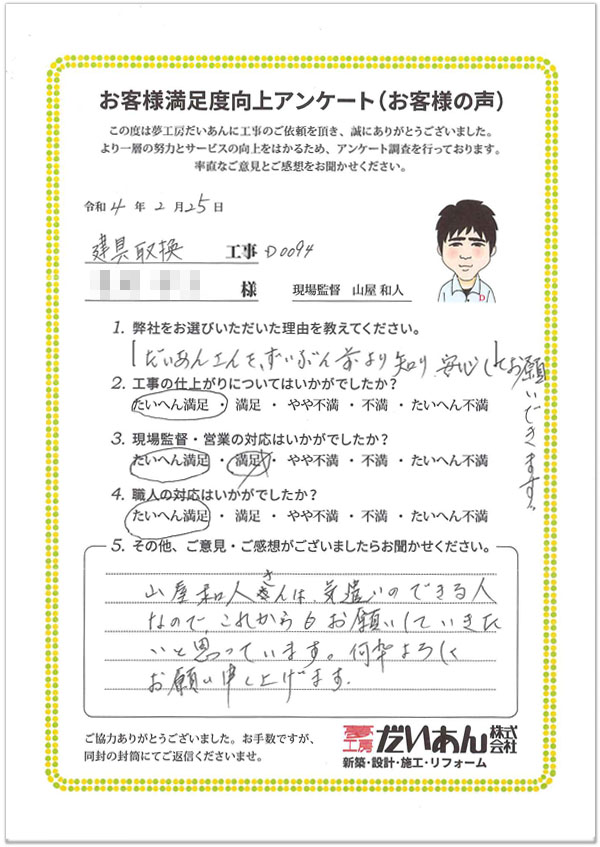 お客様満足度向上アンケート(お客様の声)
この度は夢工房だいあんに工事のご依頼を頂き、誠にありがとうございました。
より一層の努力とサービスの向上をはかるため、アンケート調査を行っております。
率直なご意見とご感想をお聞かせください。
令和4年2月25日
建具取換 工事 D0094
様 現場監督 山屋和人
1. 弊社をお選びいただいた理由を教えてください。
だいあんさんを、ずいぶん前より知り、安心してお願いできます。
2. 工事の仕上がりについてはいかがでしたか?
たいへん満足 ・ 満足 ・ やや不満 ・ 不満 ・ たいへん不満
3. 現場監督・営業の対応はいかがでしたか?
たいへん満足 ・ 満足 ・ やや不満 ・ 不満 ・ たいへん不満
4. 職人の対応はいかがでしたか?
たいへん満足 ・ 満足 ・ やや不満 ・ 不満 ・ たいへん不満
5. その他、ご意見・ご感想がございましたらお聞かせください。
山屋和人さんは、気遣いのできる人
なので これからもお願いしていきた
いと思っています。何卒よろしく
お願い申し上げます.
ご協力ありがとうございました。お手数ですが、
同封の封筒にてご返信くださいませ。
夢工房 だいあん 株式会社
新築・設計・施工・リフォーム